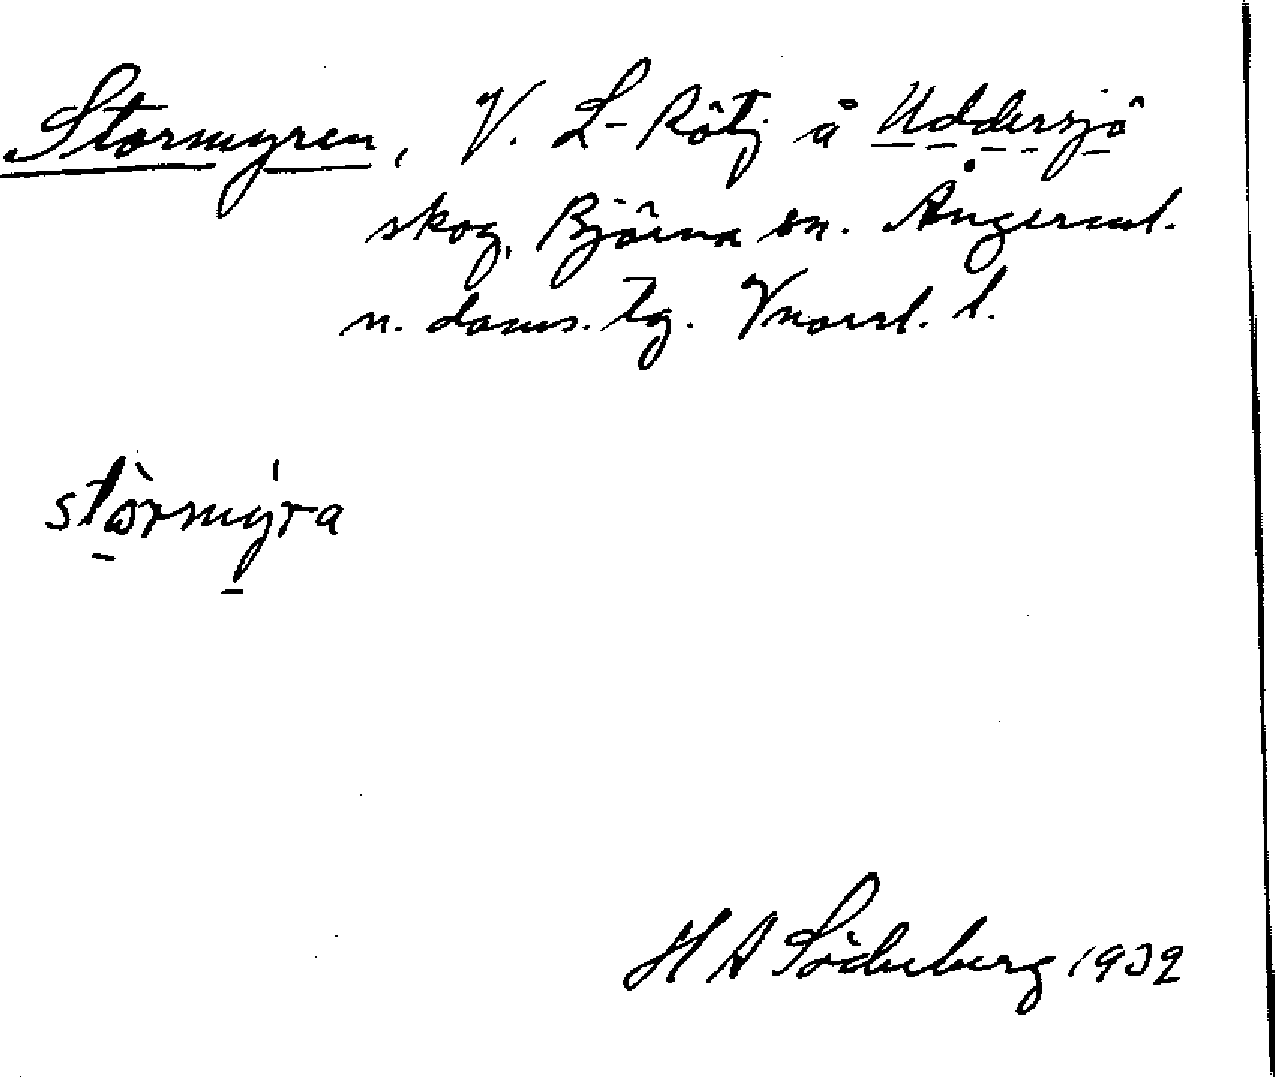 Stormyren, V. L-Rötj. å Uddersjö
skog, Björna sn. Ångerml.
n. doms. lg. Vnorrl. l.
stòrmýra
H A Söderberg 1932